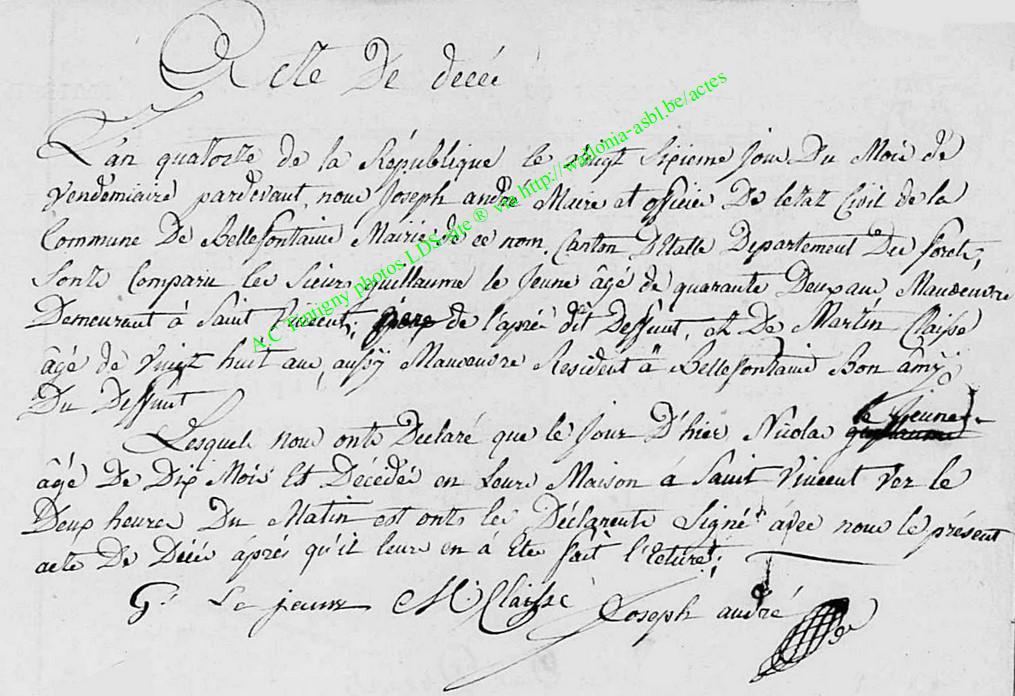 Acte De décé
L'an quatorze de la République le vingt Sixieme Jour Du Mois de
vendemiaire pardevant, nous Joseph andré Maire et officier De letat Civil de la
Commune De Bellefontaine Mairie de ce nom, Canton D'Etalle Departement Des forets,
Sont Comparu les Sieurs Guillaume le Jeune âgé de quarante Deux ans Manoeuvre
Demeurant à Saint Vincent, père de l'aprés dit Deffunt, et De Martin Claisse
âgé de vingt huit ans, aussy Manoeuvre Resident a Bellefontaine Bon âmy
Du Deffunt
Lesquels nous onts Declaré que le Jour D'hier Nicolas le Jeune
âgé De Dix Mois Est Décédé en Leurs Maison á Saint Vincent Ver le
Deux heures Du Matin est onts les Déclarents Signé avec nous le présent
acte De Décé áprés qu'il leurs en à Eté fait l'ecture;
G. Le jeune M. Claisse Joseph andré
A.C Tontigny photos LDS site ® via http://wallonia-asbl.be/actes